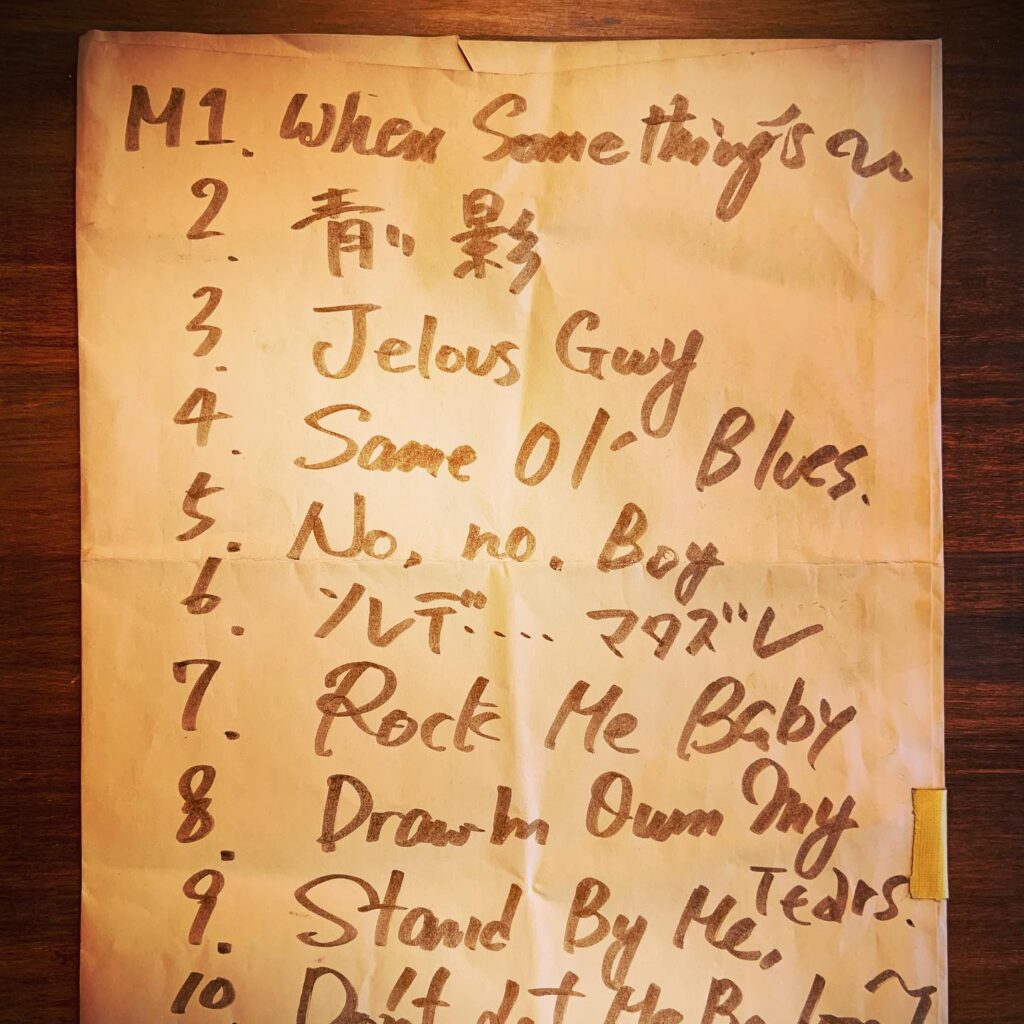 M1. When Something's 〜
2. 青い影
3. Jelous Guy
4. Same Ol' Blues.
5. No, no. Boy
6. ソレデ‥‥ マタズレ
7. Rock Me Baby
8. Draw In Own My
Tears.
9. Stand By Me,
10. Don't Let Me Be Lon〜